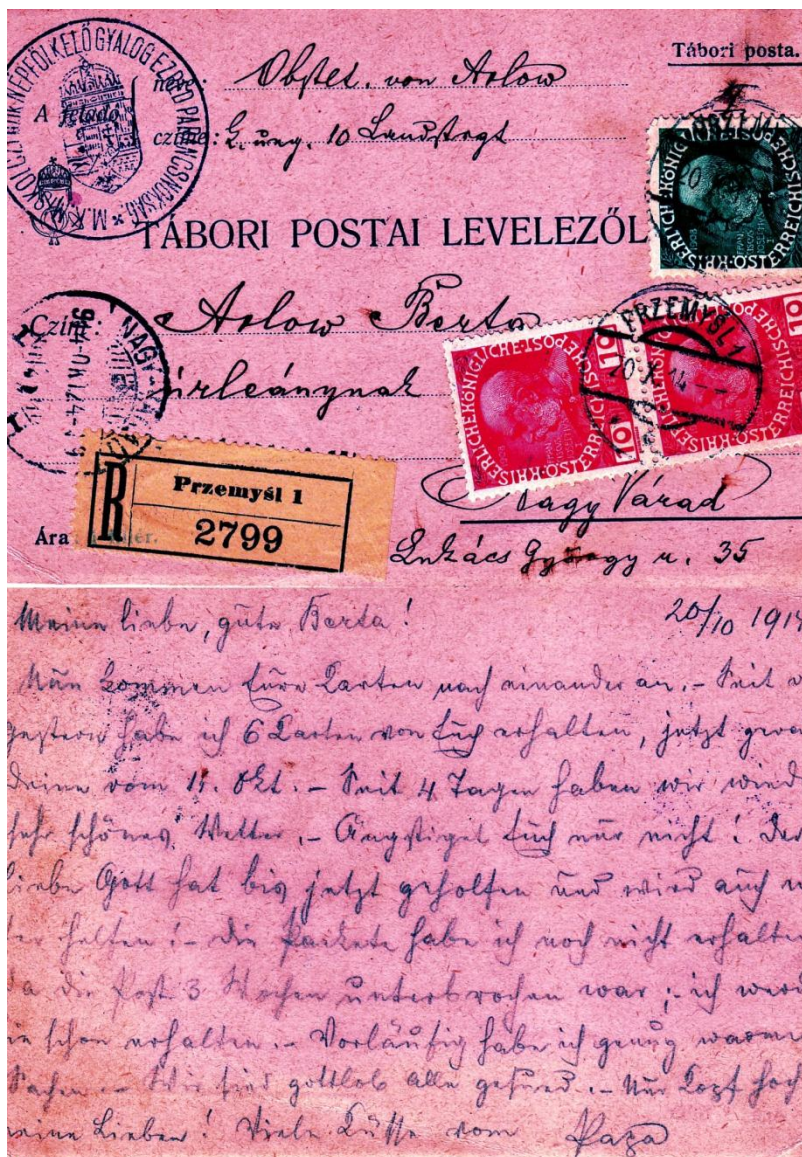 M. KIR. MISKOLCZI 10. NÉPFÖLKELŐ GYALOG EZRED PARANCSNOKSÁG
Tábori posta.
A feladó
neve: Obstlt. von Aslow
czíme: K. ung. 10 Landstrgt
TÁBORI POSTAI LEVELEZŐL
Czím: Aslow Berta
úrleánynak
Nagy Várad
Lukács György u. 35
Ára
R
Przemyśl 1
2799
KAISERLICHE KÖNIGLICHE ÖSTERREICHISCHE POST
10
10
PRZEMYŚL 1
20 X 14
NAGY-VÁRAD
914 OKT
Meine liebe, gute Berta! 20/10 1914
Nun kommen Eure Karten nach einander an. – Seit
gestern habe ich 6 Karten von Euch erhalten, jetzt
Deine vom 11. Okt. – Seit 4 Tagen haben wir wied
sehr schönes Wetter. – Ängstiget Euch nur nicht! Der
liebe Gott hat bis jetzt geholfen und wird auch
ter helfen! – Die Packete habe ich noch nicht erhalten
da die Post 3 Wochen unterbrochen war; – ich werd
sie schon erhalten. – Vorläufig habe ich genug warme
Sachen. – Wir sind gottlob alle gesund. – Nur Kopf hoch
meine Lieben! Viele Küsse vom Papa